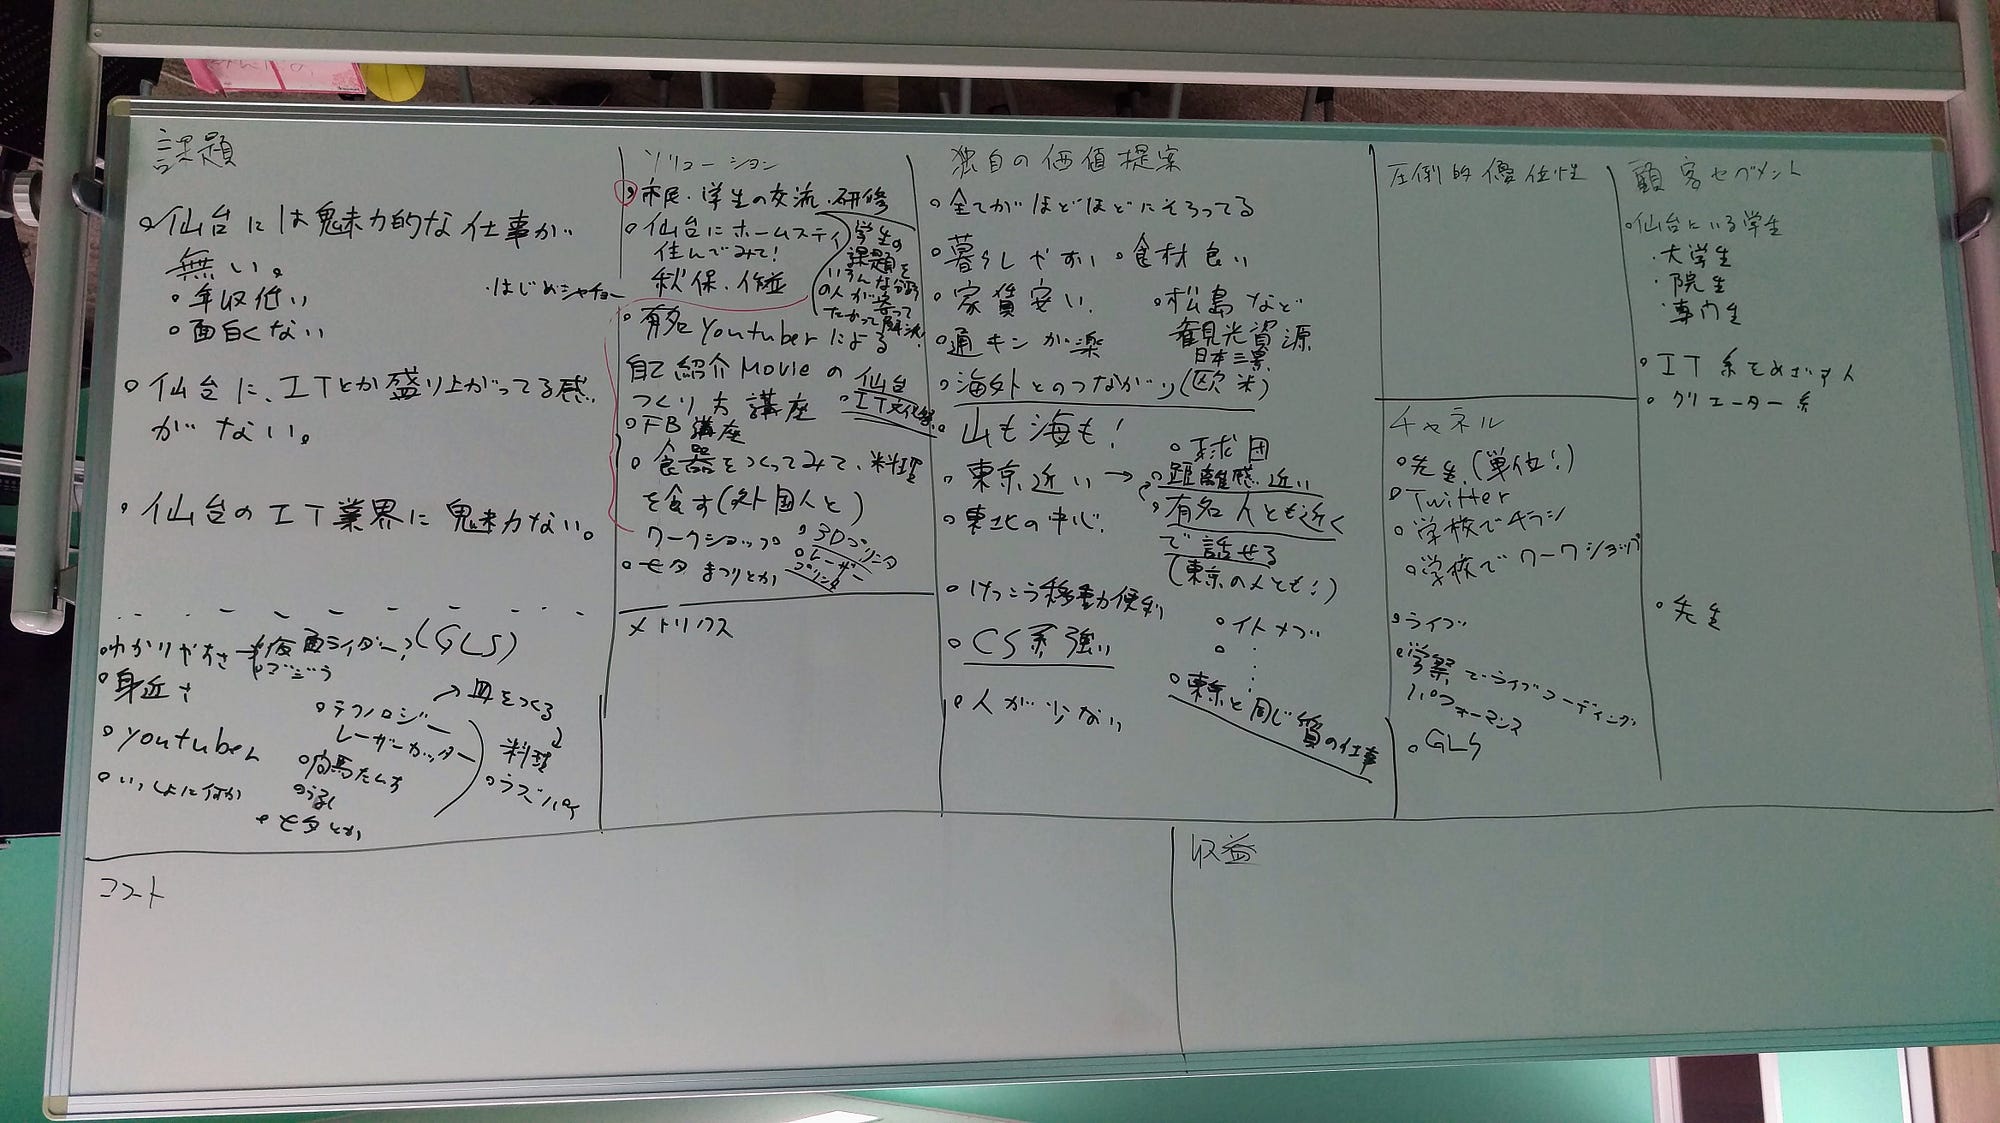 課題
○仙台には魅力的な仕事が
無い。
○年収低い
○面白くない
・はじめシャチョー
○仙台に、ITとか盛り上がってる感
がない。
○仙台のIT業界に魅力ない。
○わかりやすさ→仮面ライダー?(GLS)
○身近さ
○youtuber
○いっしょに何か
○テクノロジー
レーザーカッター
→皿をつくる
料理
○ラズパイ
○七夕とか
ソリューション
○市民・学生の交流・研修
○仙台にホームステイ
住んでみて!
秋保・作並
学生の
課題を
いろんな分野
の人が寄って
たかって解決
○有名youtuberによる
自己紹介Movieの
つくり方講座
○仙台
IT文化祭
○FB講座
○食器をつくってみて、料理
を食す(外国人と)
ワークショップ
○3Dプリンタ
○レーザー
プリンタ
○七夕まつりとか
メトリクス
独自の価値提案
○全てがほどほどにそろってる
○暮らしやすい ○食材良い
○家賃安い.
○松島など
観光資源
日本三景
○通キンが楽
○海外とのつながり(欧米)
○山も海も!
○球団
○東京近い→
○距離感近い
○有名人とも近く
で話せる
(東京の人とも!)
○東北の中心.
○けっこう移動便利
○イトナブ
○CS系強い
○東京と同じ質の仕事
○人が少ない
圧倒的優位性
チャネル
○先生(単位!)
○Twitter
○学校でチラシ
○学校でワークショップ
○ライブ
○学祭でライブコーディング
パフォーマンス
○GLS
顧客セグメント
○仙台にいる学生
・大学生
・院生
・専門生
○IT系をめざす人
○クリエーター系
○先生
コスト
収益